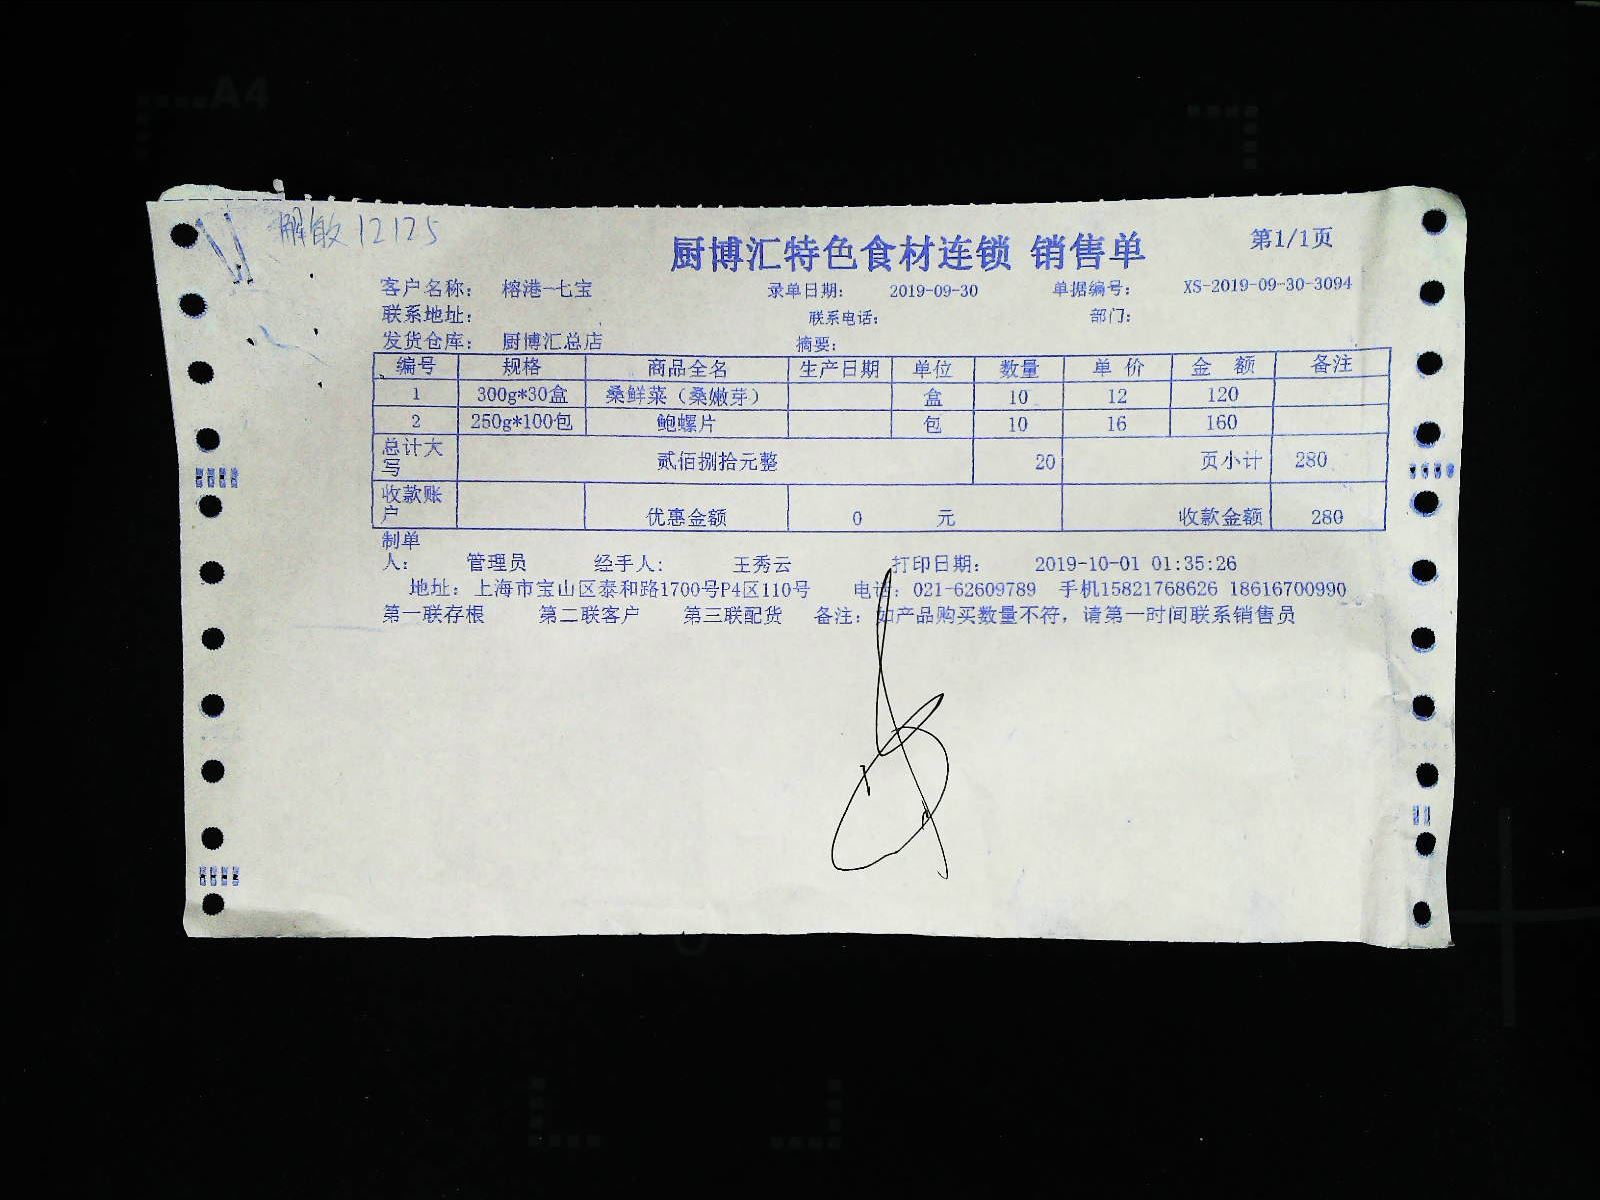 解敏 12125
厨博汇特色食材连锁 销售单 第1/1页
客户名称： 榕港-七宝 录单日期： 2019-09-30 单据编号： XS-2019-09-30-3094
联系地址： 联系电话： 部门：
发货仓库： 厨博汇总店 摘要：
编号 规格 商品全名 生产日期 单位 数量 单 价 金 额 备注
1 300g*30盒 桑鲜菜（桑嫩芽） 盒 10 12 120
2 250g*100包 鲍螺片 包 10 16 160
总计大写 贰佰捌拾元整 20 页小计 280
收款账户 优惠金额 0 元 收款金额 280
制单人： 管理员 经手人： 王秀云 打印日期： 2019-10-01 01:35:26
地址：上海市宝山区泰和路1700号P4区110号 电话：021-62609789 手机15821768626 18616700990
第一联存根 第二联客户 第三联配货 备注：如产品购买数量不符，请第一时间联系销售员
A4